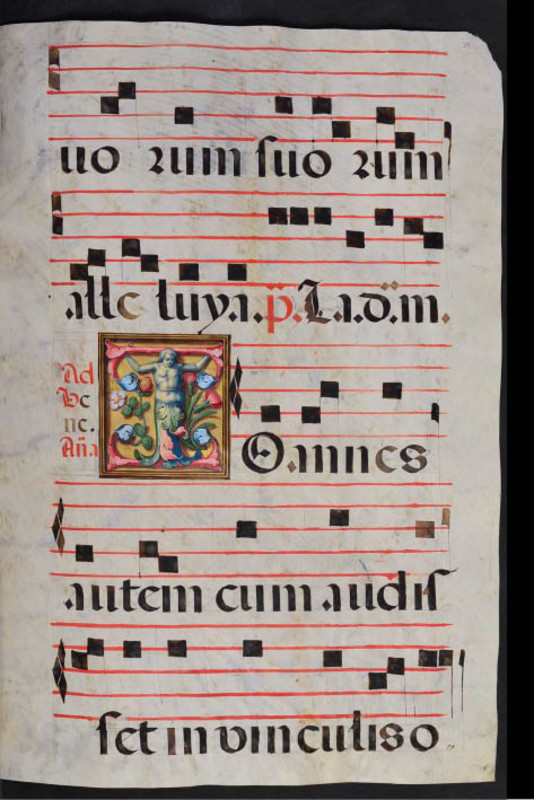 uo rum suo rum
alle luya. p̄. La.d.m.
Ad
Be
ne.
Aña
IOannes
autem cum audis
set in vinculis o